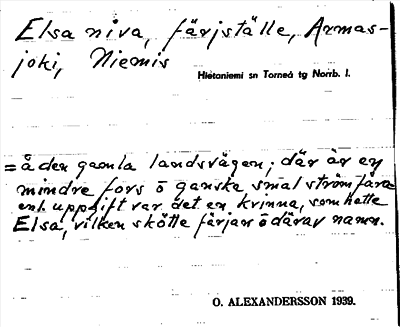 Elsa niva, färjställe, Armas-
joki, Niemis
Hietaniemi sn Torneå tg Norrb. l.
= å den gamla landsvägen; där är en
mindre fors o ganska smal strömfåra
enl. uppgift var det en kvinna, som hette
Elsa, vilken skötte färjan o därav namn.
O. ALEXANDERSSON 1939.